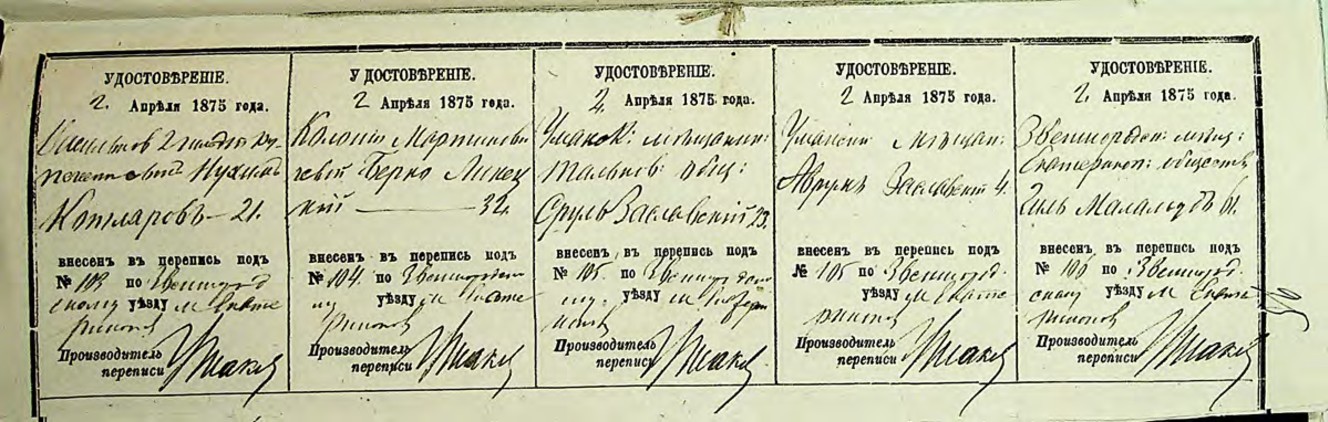 УДОСТОВѢРЕНІЕ.
2. Апрѣля 1875 года.
2 гильдіи ку-
Нухимъ
Котляровъ — 21.
внесенъ въ перепись подъ
№ 103 по Звенигород
скому уѣзду м Екате
ринопов
Производитель
переписи
УДОСТОВѢРЕНІЕ.
2 Апрѣля 1875 года.
Берко Липец
кій — 32.
внесенъ въ перепись подъ
№ 104. по Звенигородско
му уѣзду м Екате
ринопов
Производитель
переписи
УДОСТОВѢРЕНІЕ.
2. Апрѣля 1875 года.
Уманск: мѣщанин:
Тальнов: общ:
Сруль Заславскій 23.
внесенъ въ перепись подъ
№ 105. по Звенигородско
му. уѣзду м
Производитель
переписи
УДОСТОВѢРЕНІЕ.
2 Апрѣля 1875 года.
Уманскій мѣщан:
Аврумъ Заславскій 4.
внесенъ въ перепись подъ
№ 105 по Звенигород.
уѣзду м Екате
ринопов
Производитель
переписи
УДОСТОВѢРЕНІЕ.
2. Апрѣля 1875 года.
Звенигородск: мѣщ:
Екатериноп: обществ
61.
внесенъ въ перепись подъ
№ 106 по Звенигород-
скому уѣзду м Екате
ринопов
Производитель
переписи